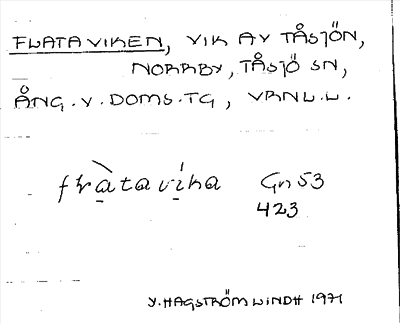 FLATAVIKEN, VIK AV TÅSJÖN,
NORRBY, TÅSJÖ SN,
ÅNG.V.DOMS.TG, VRNL.L.
fràtavika Gn 53
423
Y. HAGSTRÖM LINDH 1971